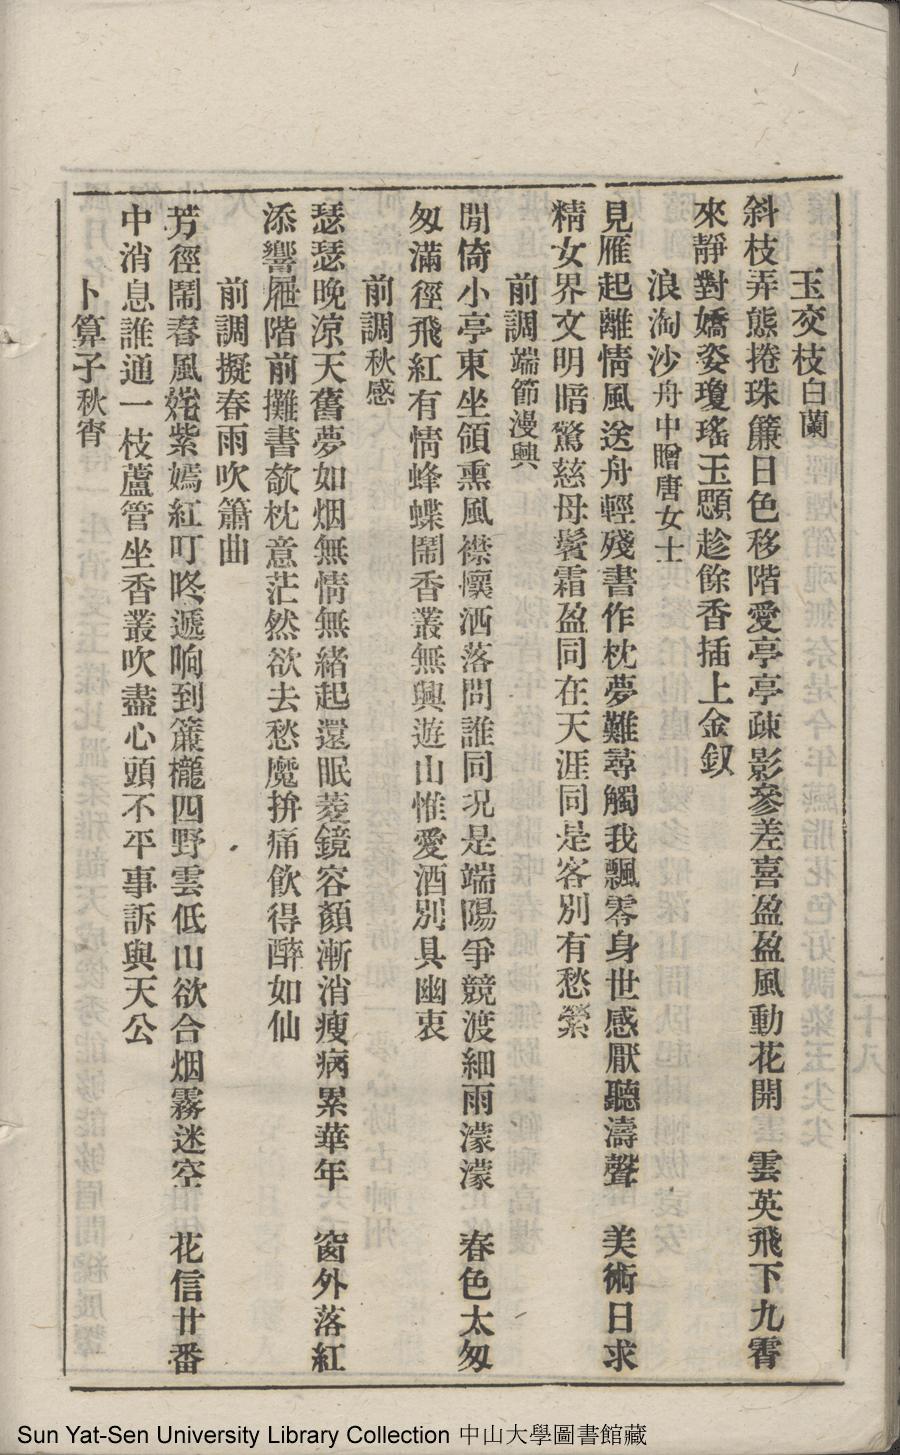 玉交枝白蘭
斜枝弄態捲珠簾日色移階愛亭亭疎影參差喜盈盈風動花開　雲英飛下九霄
來靜對嬌姿瓊瑤玉顋趁餘香插上金釵
浪淘沙舟中贈唐女士
見雁起離情風送舟輕殘書作枕夢難尋觸我飄零身世感厭聽濤聲　美術日求
精女界文明暗驚慈母鬢霜盈同在天涯同是客別有愁縈
前調端節漫興
閒倚小亭東坐領熏風襟懷洒落問誰同况是端陽爭競渡細雨濛濛　春色太匆
匆滿徑飛紅有情蜂蝶鬧香叢無興遊山惟愛酒別具幽衷
前調秋感
瑟瑟晚涼天舊夢如烟無情無緒起還眠菱鏡容顏漸消瘦病累華年　窗外落紅
添響屧階前攤書欹枕意茫然欲去愁魔拚痛飲得醉如仙
前調擬春雨吹簫曲
芳徑鬧春風姹紫嫣紅叮咚遞响到簾櫳四野雲低山欲合烟霧迷空　花信廿番
中消息誰通一枝蘆管坐香叢吹盡心頭不平事訴與天公
卜算子秋宵
二十八
Sun Yat-Sen University Library Collection 中山大學圖書館藏